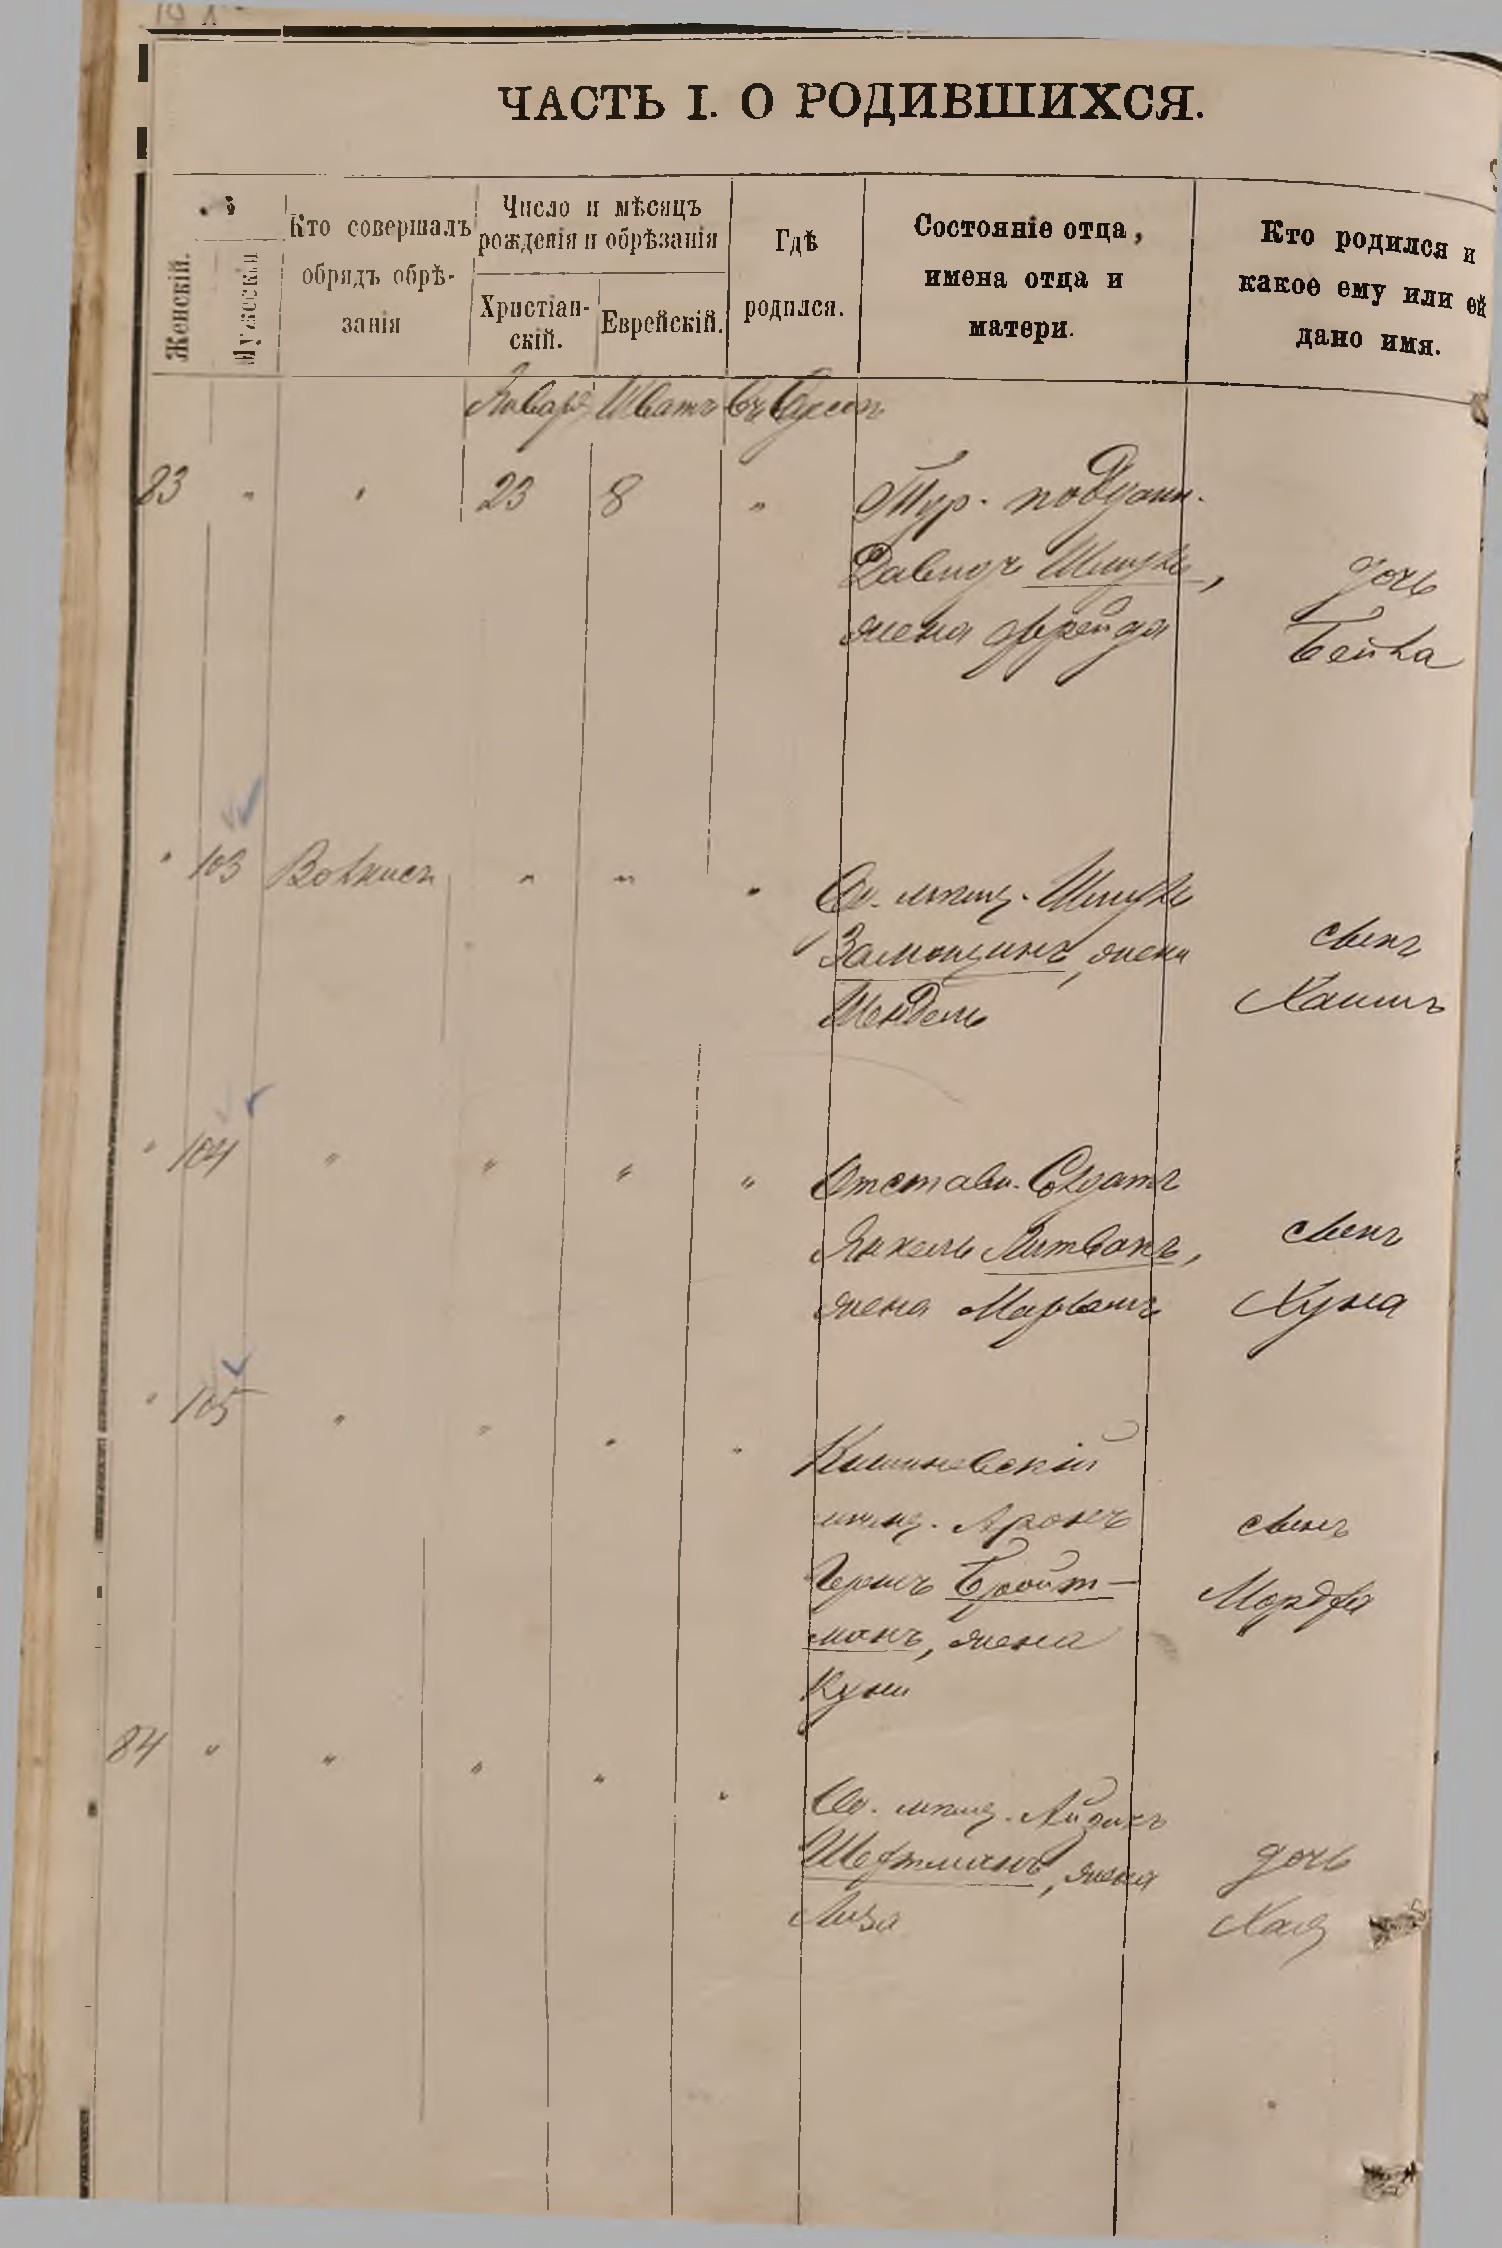 ЧАСТЬ I. О РОДИВШИХСЯ.
Женскій.
Мужескій
Кто совершалъ
обрядъ обрѣ-
занія
Число и мѣсяцъ
рожденія и обрѣзанія
Христіан-
скій.
Еврейскій.
Гдѣ
родился.
Состояніе отца,
имена отца и
матери.
Кто родился и
какое ему или ей
дано имя.
Январь Шватъ въ Одессѣ
83 " " 23 8 " Тур. поддан.
Давидъ Шмуль,
жена Фрейда
дочь
Бейла
" 103 " " " Од. мѣщ. Шмуль
Замощинъ, жена
Шендель
сынъ
Хаимъ
" 104 " " " " Отставн. Солдатъ
Янкель Литвакъ,
жена Марьемъ
сынъ
Хуна
" 105 " " " " Кишиневскій
мѣщ. Аронъ
Гершъ Бройт-
манъ, жена
Куни
сынъ
Мордко
84 " " " " " Од. мѣщ. Айзикъ
Шефтманъ, жена
Лиза
дочь
Хая